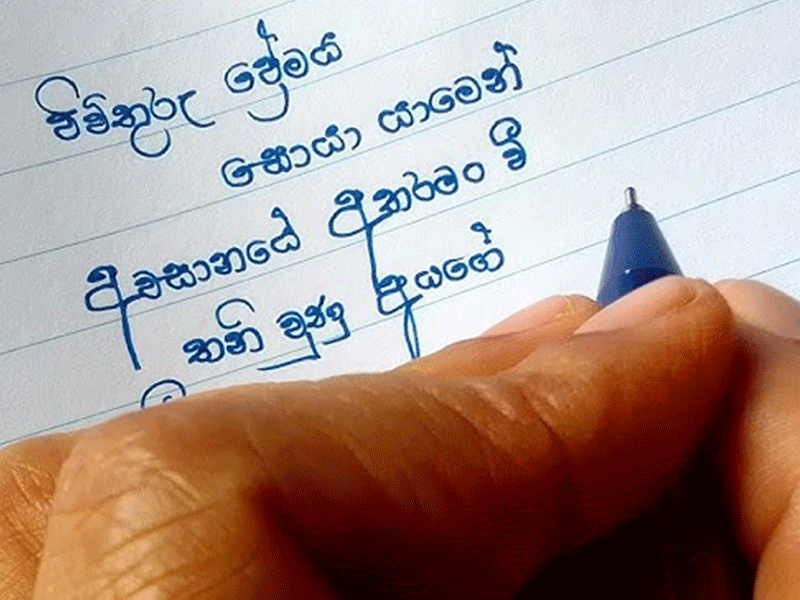 පිවිතුරු ප්‍රේමය
සොයා යාමෙන්
අවසානයේ අතරමං වී
තනි වුණු අයගේ